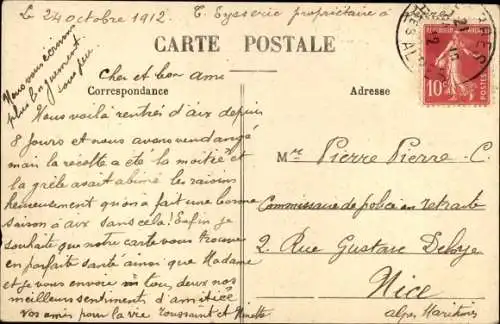 Le 24 octobre 1912 T. Eysseric propriétaire à
CARTE POSTALE
Nous vous écrirons
plus longuement
sous peu
Cher et bon ami
Correspondance
Adresse
Nous voilà rentrés d'aix depuis
8 jours et nous avons vendangé
mais la récolte a été la moitié et
la grêle avait abimé les raisins
heureusement qu'on a fait une bonne
saison à aix sans cela! Enfin je
souhaite que notre carte vous trouve
en parfaite santé ainsi que Madame
et je vous envoie à tous deux nos
meilleurs sentiments d'amitié
Vos amis pour la vie Toussaint et
10c
POSTES
Mr Pierre Pierre C.
Commissaire de police en retraite
2. Rue Gustave Deloye
Nice
Alpes Maritimes